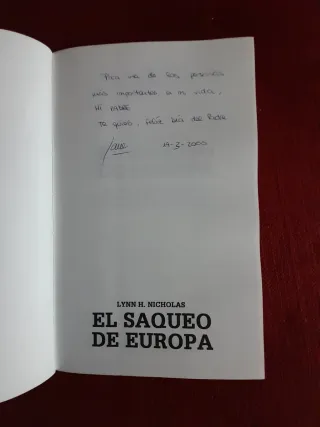 Para una de las personas
más importantes de mi vida,
Mi padre
Te quiero, feliz día del Padre
19-3-2000
LYNN H. NICHOLAS
EL SAQUEO
DE EUROPA